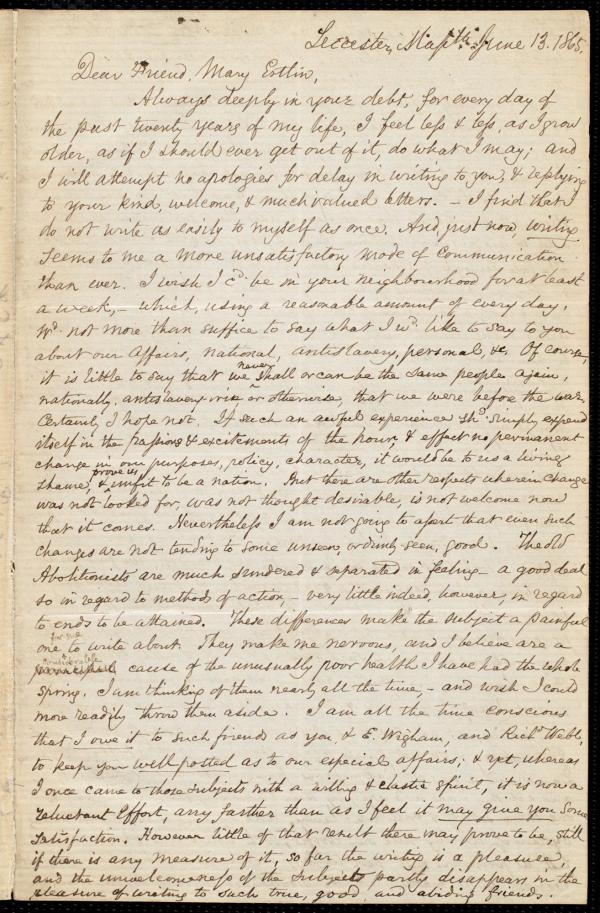 Leicester, Mass'tts. June 13. 1865.
Dear Friend, Mary Estlin,
Always deeply in your debt, for every day of
the past twenty years of my life, I feel less & less, as I grow
older, as if I should ever get out of it, do what I may; and
I will attempt no apologies for delay in writing to you, & replying
to your kind, welcome, & much valued letters. – I find that I
do not write as easily to myself as once. And, just now, writing
seems to me a more unsatisfactory mode of communication
than ever. I wish I cd. be in your neighbourhood for at least
a week, – which, using a reasonable amount of every day,
wd. not more than suffice to say what I wd. like to say to you
about our affairs, national, antislavery, personal, &c. Of course,
it is little to say that we never shall or can be the same people again,
nationally, antislavery wise or otherwise, that we were before the war.
Certainly I hope not. If such an awful experience shd. simply expend
itself in the passions & excitements of the hour, & effect no permanent
change in our purposes, policy, character, it would be to us a living
shame, & prove us unfit to be a nation. But there are other respects wherein change
was not looked for, was not thought desirable, is not welcome now
that it comes. Nevertheless I am not going to assert that even such
changes are not tending to some unseen, or dimly-seen, good. The old
Abolitionists are much sundered & separated in feeling – a good deal
so in regard to methods of action – very little indeed, however, in regard
to ends to be attained. These differences make the subject a painful
one for me to write about. They make me nervous, and I believe are a
considerable cause of the unusually poor health I have had the whole
spring. I am thinking of them nearly all the time, – and wish I could
more readily throw them aside. I am all the time conscious
that I owe it to such friends as you, & E. Wigham, and Richd. Webb,
to keep you well posted as to our especial affairs; & yet, whereas
I once came to those subjects with a willing & elastic spirit, it is now a
reluctant effort, any farther than as I feel it may give you some
satisfaction. However little of that result there may prove to be, still
if there is any measure of it, so far the writing is a pleasure,
and the unwelcomeness of the subjects partly disappears in the
pleasure of writing to such true, good, and abiding friends.